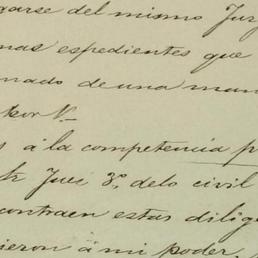 garse del mismo Juz
mas espedientes que
mado de una man
por V
s á la competencia p
Juez 3º. delo civil
contraen estas dilig
ieron á mi poder.